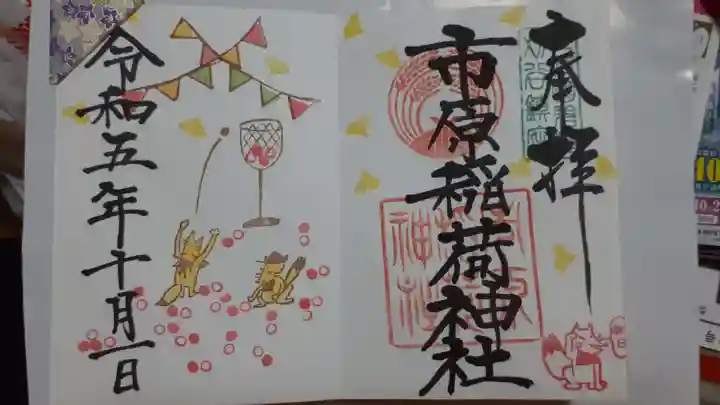 奉拝
市原稲荷神社
令和五年十月一日